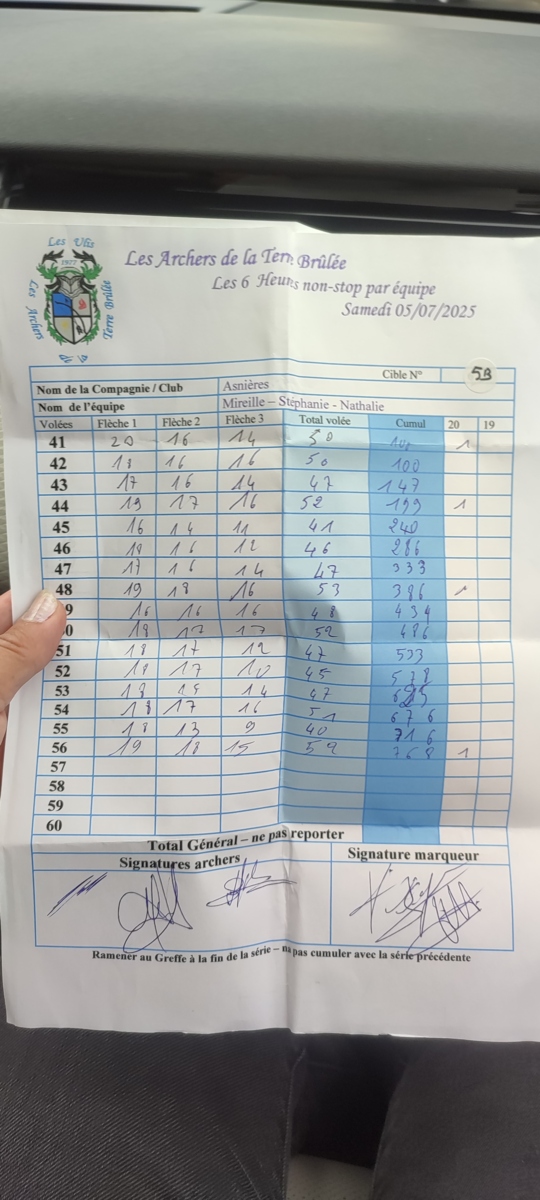 Les Ulis
1977
Les Archers
Terre Brûlée
Les Archers de la Terre Brûlée
Les 6 Heures non-stop par équipe
Samedi 05/07/2025
Cible N° 5B
Nom de la Compagnie / Club Asnières
Nom de l'équipe Mireille – Stéphanie - Nathalie
Volées Flèche 1 Flèche 2 Flèche 3 Total volée Cumul 20 19
41 20 16 14 50 1
42 18 16 16 50 100
43 17 16 14 47 147
44 19 17 16 52 199 1
45 16 14 11 41 240
46 18 16 12 46 286
47 17 16 14 47 333
48 19 18 16 53 386
49 16 16 16 48 434
50 18 17 17 52 486
51 18 17 12 47 533
52 18 17 10 45 578
53 18 15 14 47
54 18 17 16 51 676
55 18 13 9 40 716
56 19 18 15 52 768 1
57
58
59
60
Total Général – ne pas reporter
Signatures archers Signature marqueur
Ramener au Greffe à la fin de la série – ne pas cumuler avec la série précédente